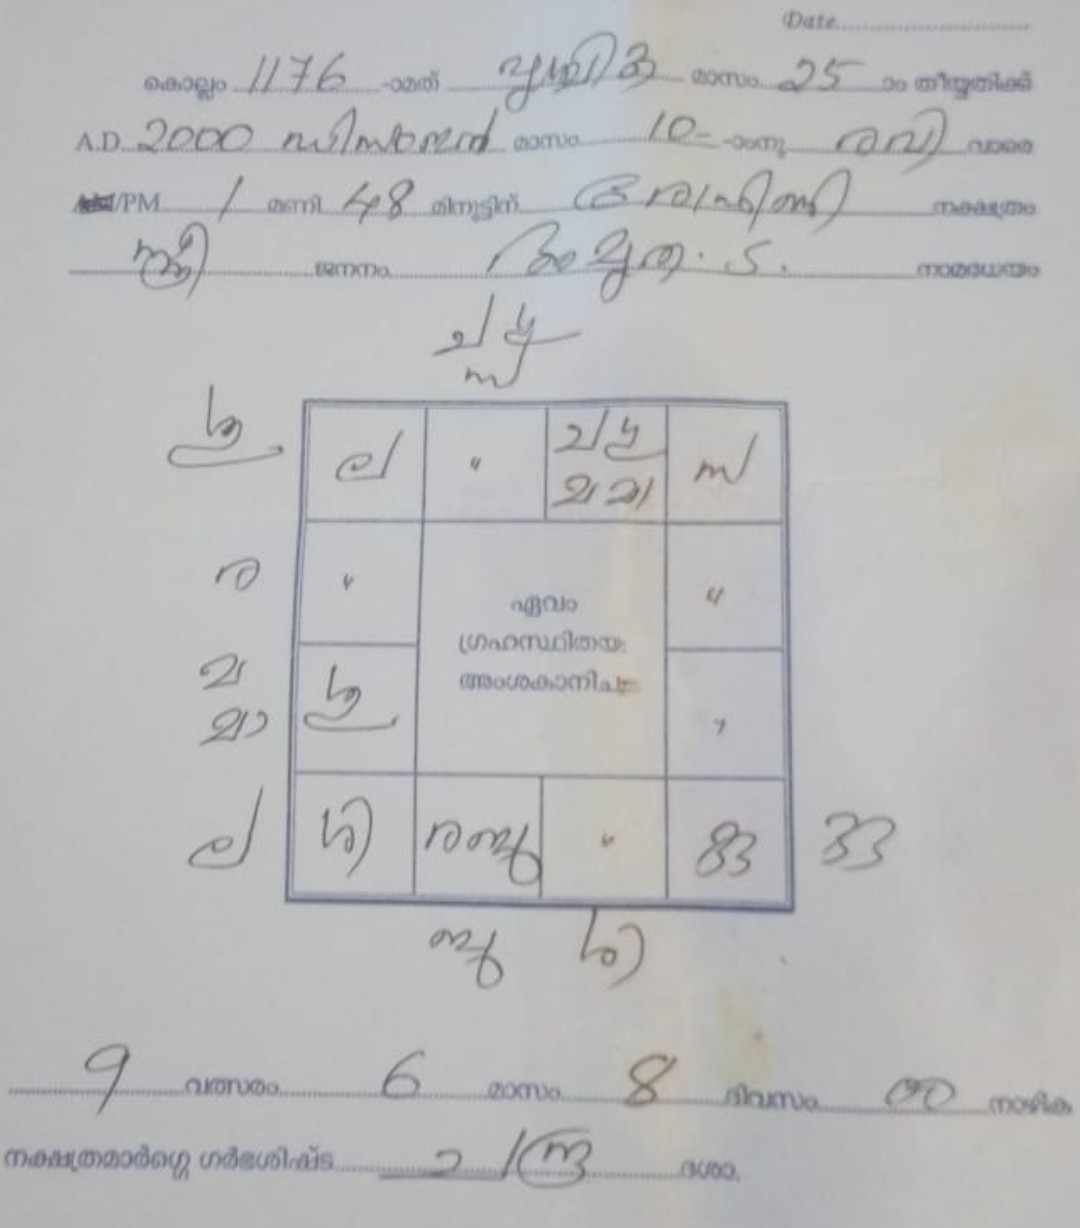 Date
കൊല്ലം 1176 -ാമത് വൃശ്ചിക മാസം 25 ാം തീയ്യതിക്ക്
A.D. 2000 ഡിസംബർ മാസം 10- -ാംനു രവി വാരെ
AM/PM 1 മണി 48 മിനുട്ടിന് രോഹിണി നക്ഷത്രം
സ്ത്രീ ജനനം അമൃത. S. നാമധേയം
ച വ്യ
സ
ല " ച വ്യ സ
മ മാ
ര " "
ഏവം
ഗ്രഹസ്ഥിതയഃ
അംശകാനിചഃ
മ
മാ
ല ശി രബു " കു കു
ബു
9 വത്സരം 6 മാസം 8 ദിവസം 00 നാഴിക
നക്ഷത്രമാർഗ്ഗെ ഗർഭശിഷ്ട ചന്ദ്ര ദശാ.